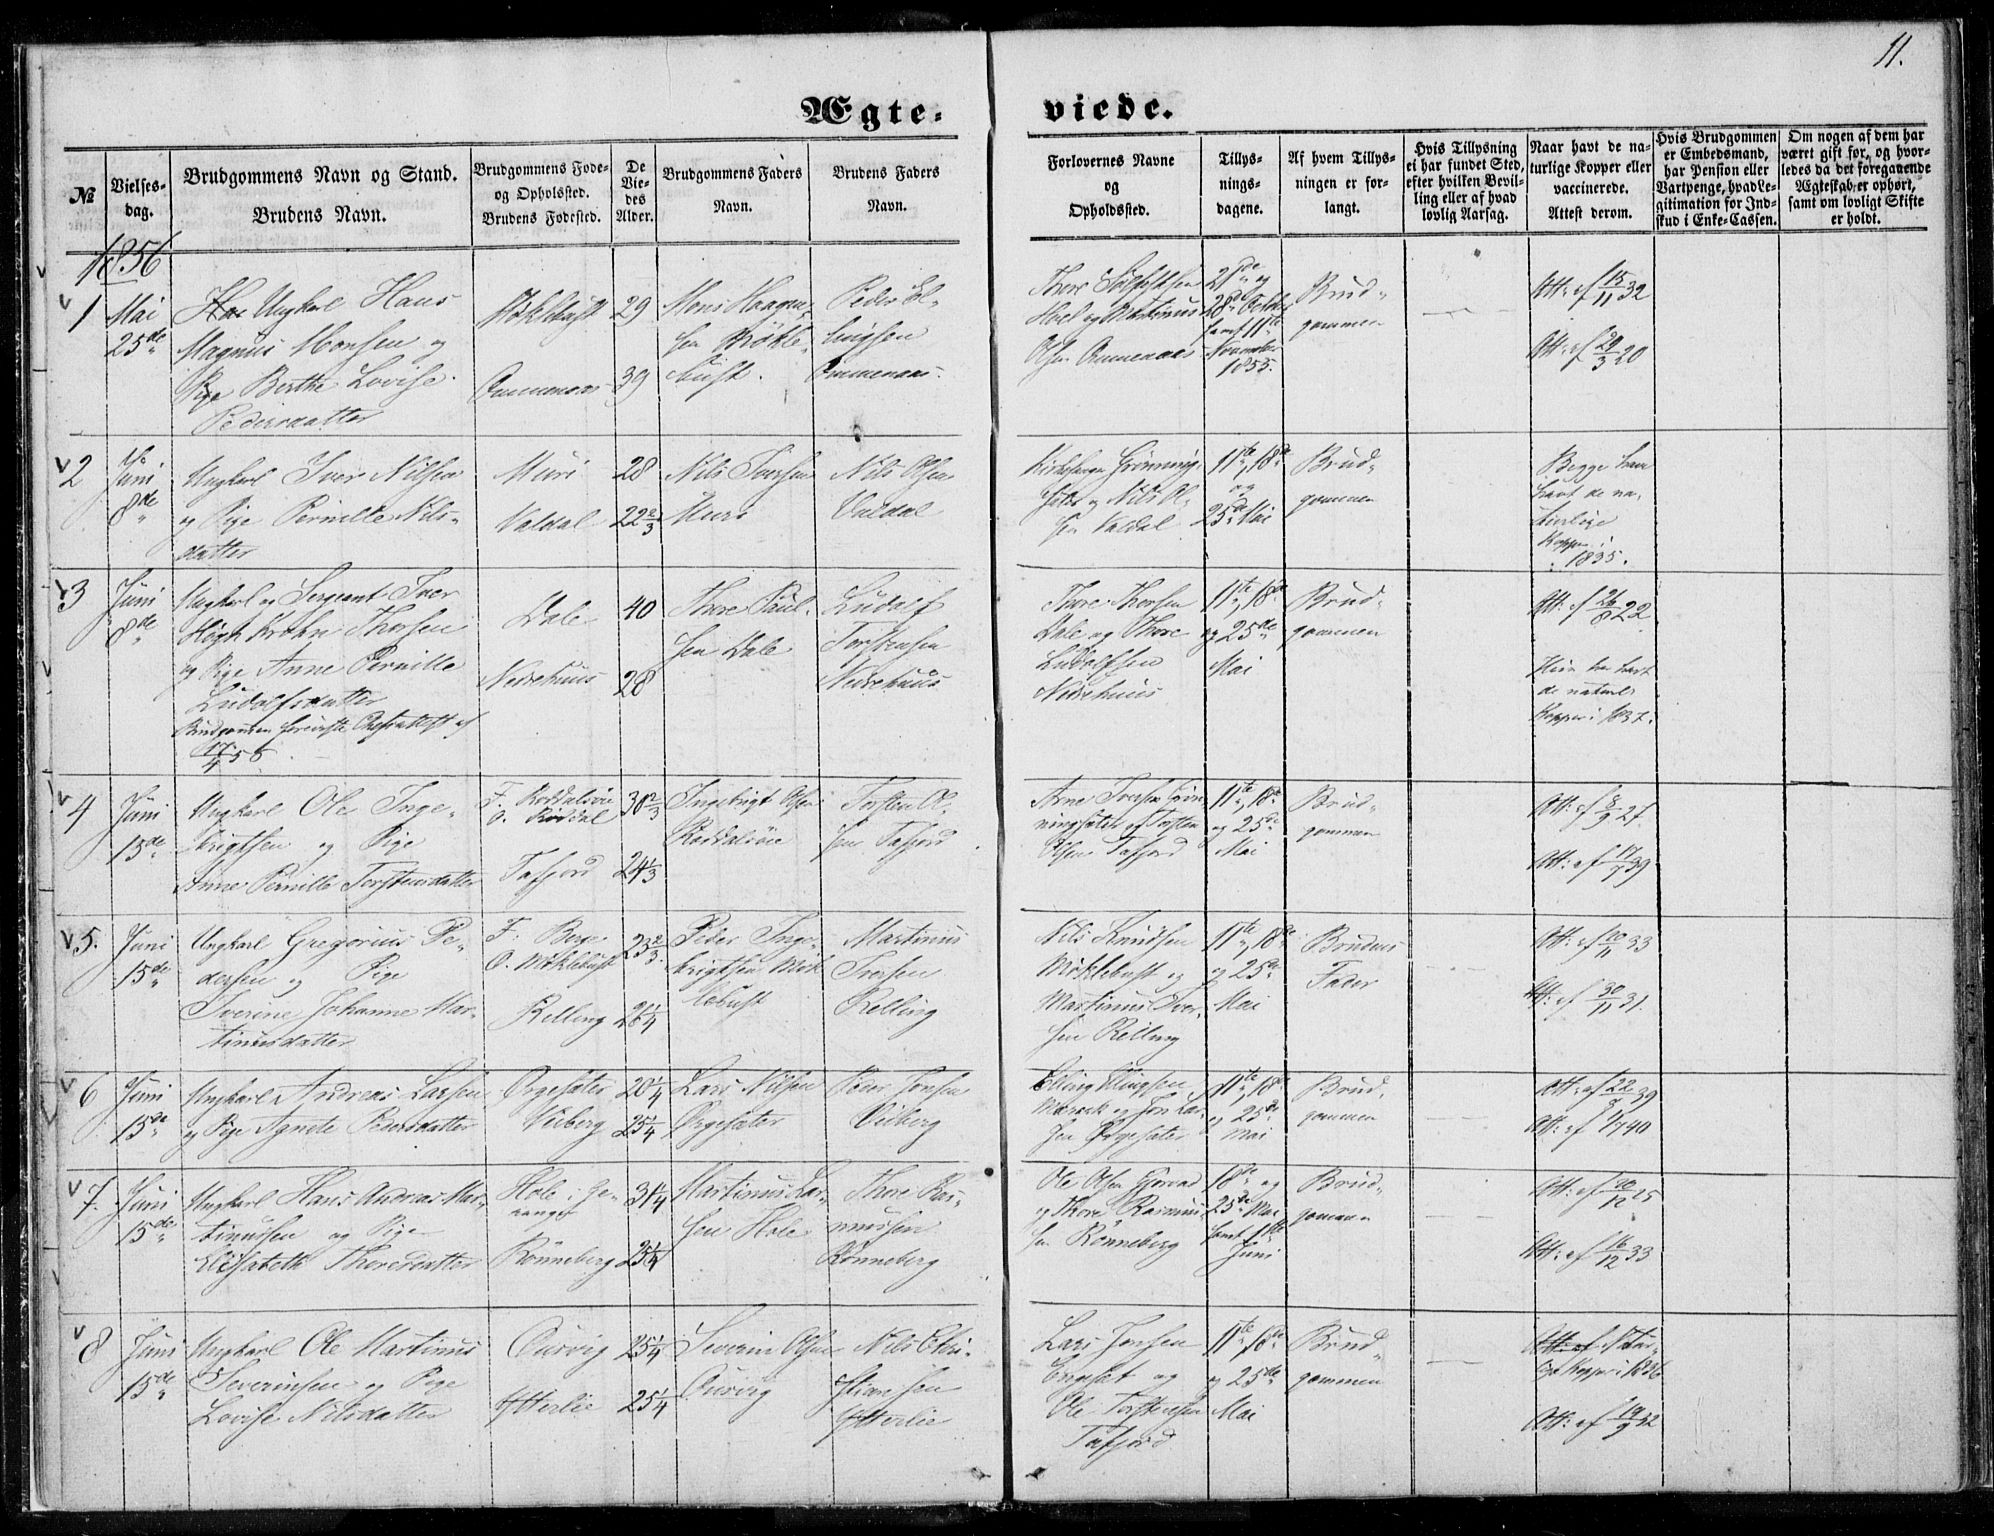 11.
Ægte- viede.
№
Vielses-
dag.
Brudgommens Navn og Stand.
Brudens Navn.
Brudgommens Føde-
og Opholsted.
Brudens Fødested.
De
Vie-
des
Alder.
Brudgommens Faders
Navn.
Brudens Faders
Navn.
Forlovernes Navne
og
Opholdssted.
Tillys-
nings-
dagene.
Af hvem Tillys-
ningen er for-
langt.
Hvis Tillysning
ei har fundet Sted,
efter hvilken Bevil-
ling eller af hvad
lovlig Aarsag.
Naar havt de na-
turlige Kopper eller
vaccinerede.
Attest derom.
Hvis Brudgommen
er Embedsmand,
har Pension eller
Vartpenge, hvad Le-
gitimation for Ind-
skud i Enke-Cassen.
Om nogen af dem har
været gift før, og hvor-
ledes da det foregaaende
Ægteskab er ophørt,
samt om lovligt Skifte
er holdt.
1856
1
Mai
25de
Ungkarl Hans
Magnus Monsen og
Pige Berthe Lovise
Pedersdatter
Møklebust
Ommenaas
29
39
Mons Haagen-
sen Møkle-
bust.
Peder El-
lingsen
Ommenaas
Thore Sølfestsen
Hoel og Martinus
Olsen Ommenaas
21de og
28de October
samt 11te
November
1855.
Brud-
gommen
Att: af 15/11 32
Att: af 29/3 20
2
Juni
8de
Ungkarl Iver Nilsen
og Pige Pernille Nils-
datter
Muri
Valdal
28
22 2/3
Nils Iversen
Muri
Nils Olsen
Valdal
Grønning-
sæter og Nils Ol-
sen Valdal
11te, 18de
og
25de Mai
Brud-
gommen
Begge have
havt de na-
turlige
Kopper i
1835.
3
Juni
8de
Ungkarl og Sergeant Iver
Høgh Krohn Thorsen
og Pige Anne Pernille
Ludolfsdatter
Brudgommen foreviste Afskedsattest af
17/4 56
Dale
Nedrehuus
40
28
Thore Paul-
sen Dale
Ludolf
Torstensen
Nedrehuus
Thore Thorsen
Dale og Thore
Ludolfsen
Nedrehuus
11te, 18de
og 25de
Mai
Brud-
gommen
Att: af 26/8 22
Hun har havt
de naturl:
Kopper i 1837.
4
Juni
15de
Ungkarl Ole Inge-
brigtsen og Pige
Anne Pernille Torstensdatter
F. Røddalsøie
O. Røddal
Tafjord
30 2/3
24 1/3
Ingebrigt Olsen
Røddalsøie
Torsten Ol-
sen Tafjord
Arne Iversen Grøn-
ningsæter og Torsten
Olsen Tafjord
11te, 18de
og 25de
Mai
Brud-
gommen
Att: af 3/9 27
Att: af 17/7 39
5.
Juni
15de
Ungkarl Gregorius Pe-
dersen og Pige
Iverine Johanne Mar-
tinusdatter
F. Berge
O. Møklebust
Relling
23 2/3
26 1/4
Peder Inge-
brigtsen Møk
lebust
Martinus
Iversen
Relling
Nils Knudsen
Møklebust og
Martinus Iver-
sen Relling
11te, 18de
og 25de
Mai
Brudens
Fader
Att: af 20/11 33
Att: af 30/11 31.
6
Juni
15de
Ungkarl Andreas Larsen
og Pige Agnete Pedersdatter
Ørgesæter
Viiberg
20 1/4
25 1/4
Lars Nilsen
Ørgesæter
Peder Jonsen
Viiberg
Elling Ellingsen
Maraak og Jon Lar-
sen Ørgesæter
11te, 18de
og 25de
Mai
Brud-
gommen
Att: af 22/8 39
Att: af 1/7 40
7.
Juni
15de
Ungkarl Hans Andreas Mar-
tinussen og Pige
Elisabeth Thoresdatter
Hole i Ge-
ranger
Rønneberg
31 1/4
25 1/4
Martinus Lar-
sen Hole
Thore Ras-
mussen
Rønneberg
Ole Olsen
og Thore Rasmus-
sen Rønneberg
18de og
25de Mai
samt 1ste
Juni
Brud-
gommen
Att: af 20/12 25
Att: af 16/12 33
8
Juni
15de
Ungkarl Ole Martinus
Severinsen og Pige
Lovise Nilsdatter
Ousvig
Ytterlie
25 1/4
25 1/4
Severin Olsen
Ousvig
Nils Chri-
stiansen
Ytterlie
Lars Jensen
Engeset og
Ole Torstensen
Tafjord
11te, 18de
og 25de
Mai
Brud-
gommen
Att: af Natur-
lige Kopper i 1836
Att: af 19/9 32